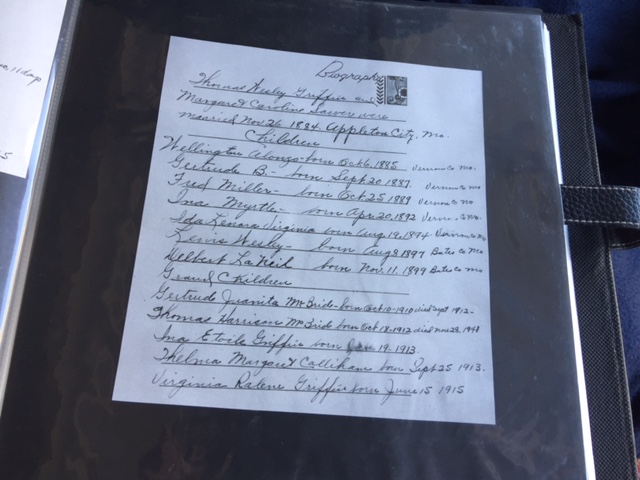 Biography
Thomas Wesly Griffin and
Margaret Caroline were
married Nov 26 1884 Appleton City, Mo.
Children
Wellington Alonzo born Oct 6, 1885 Vernon Co Mo.
Gertrude B. - born Sept 20 1887. Vernon Co Mo
Fred Miller - born Oct 25 1889 Vernon Co Mo
Ina Myrtle - born Apr. 20, 1892 Vernon Co Mo.
Ida Virginia born Aug 19, 1894 Vernon Co Mo
Lewis Wesly - born Aug 8 1897 Bates Co Mo
Welbert La Neil born Nov. 11, 1899 Bates Co Mo
Grand Children
Gertrude Juanita McBride - born Oct 10-1910 died Sept 1912-
Thomas Harrison McBride born Oct 18-1912 died Nov 28, 1948
Ina Etoile Griffin born 19, 1913
Thelma Margaret Calliham born Sept 25 1913.
Virginia Ralene Griffin born June 15 1915